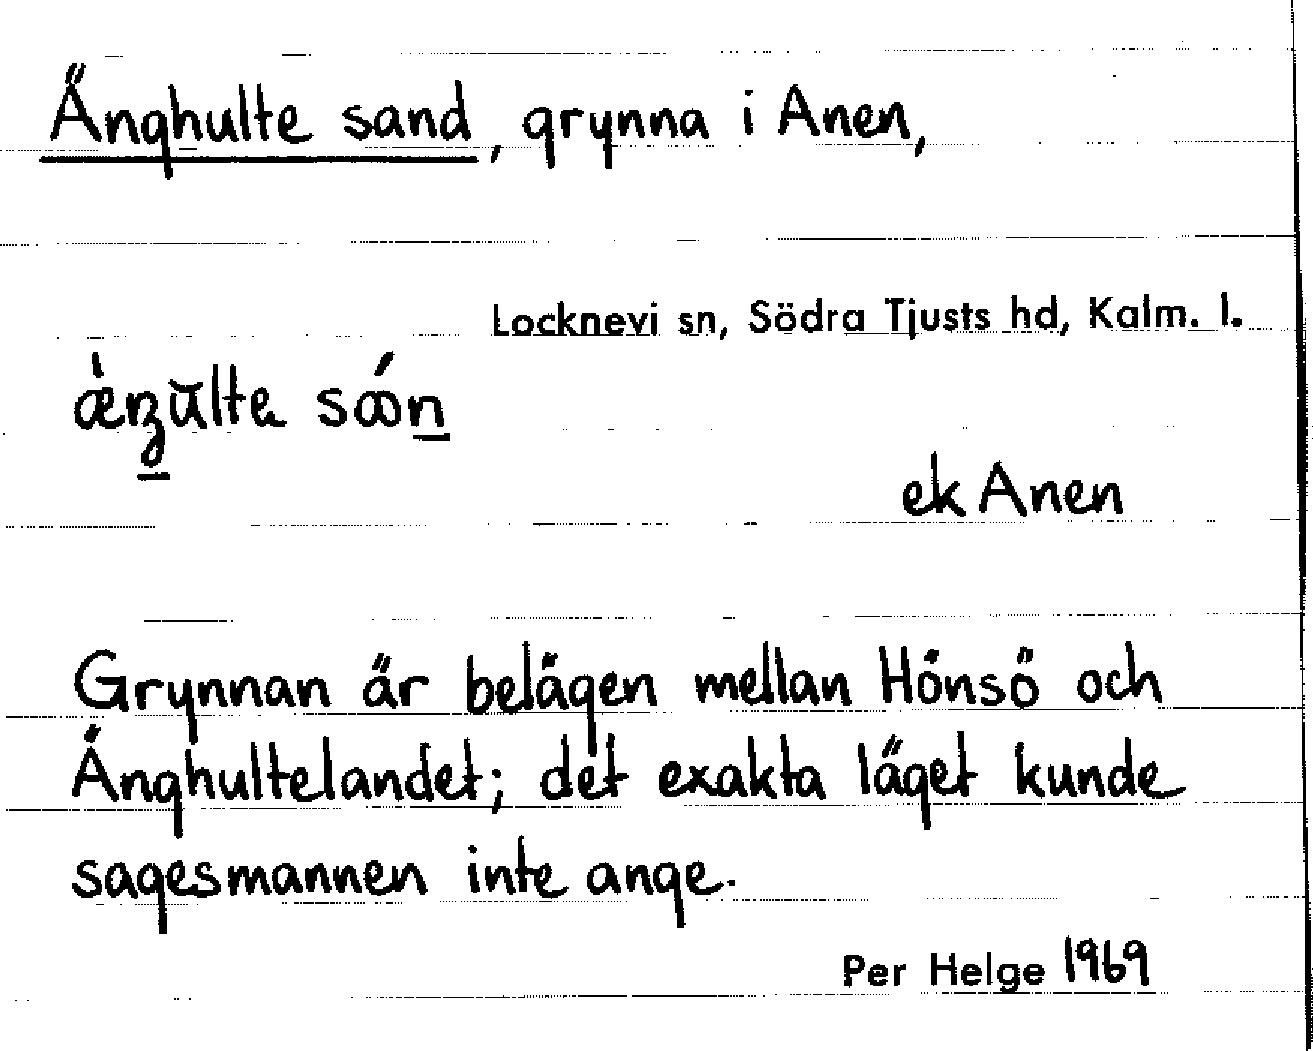 Änghulte sand, grynna i Anen,
Locknevi sn, Södra Tjusts hd, Kalm. l.
ek Anen
Grynnan är belägen mellan Hönsö och
Änghultelandet; det exakta läget kunde
sagesmannen inte ange.
Per Helge 1969